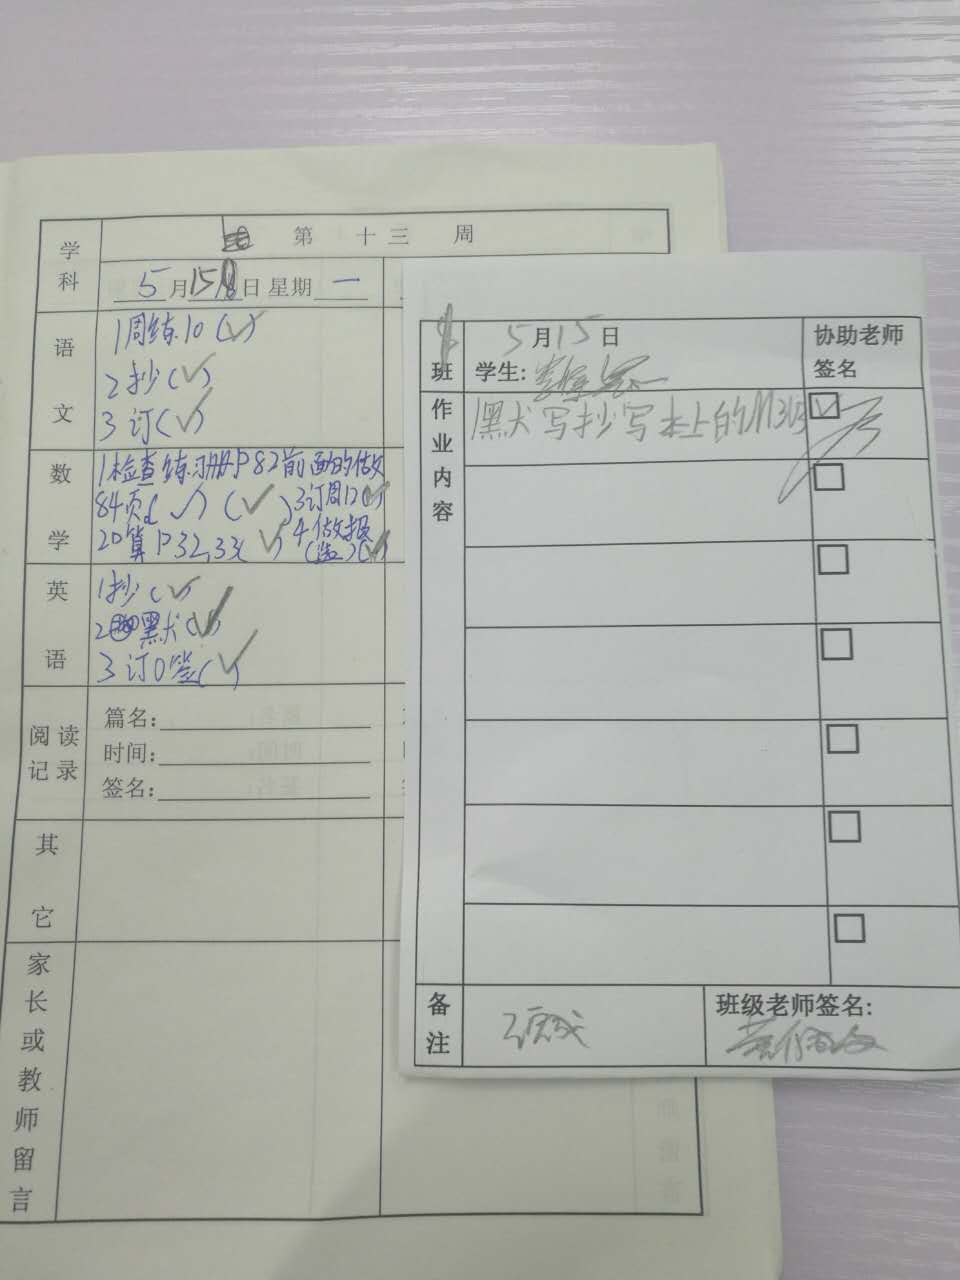 学科
第 十三 周
5月15日 星期 一
语文
1周练10(✓)
2抄(✓)
3订(✓)
数学
1检查练习册P82前面的做
84页(✓)(✓)3订周12(✓)
2口算P32,33(✓)4做报
(✓)
英语
1抄(✓)
2默(✓)
3订口签(✓)
阅读记录
篇名:
时间:
签名:
其它
家长或教师留言
班
5月15日
学生:
协助老师
签名
作业内容
1默写抄写本上的M3U3
备注
班级老师签名: